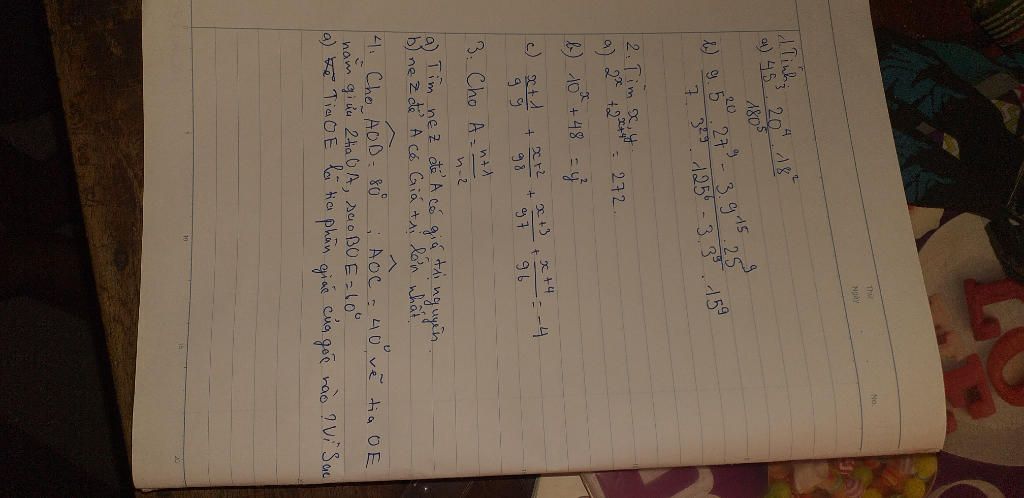 Thứ
Ngày
No.
1. Tính:
a) 45 . 20⁴ . 18² / 180⁵
b) 9 5²⁰ . 27⁹ - 3 . 9¹⁵ . 25⁹ / 7 . 3²⁹ . 125⁶ - 3 . 3⁹ . 15⁹
2. Tìm x, y.
a) 2ˣ + 2ˣ⁺⁴ = 272.
b) 10ˣ + 48 = y²
c) x+1/99 + x+2/98 + x+3/97 + x+4/96 = -4
3. Cho A = n+1/n-2
a) Tìm n∈Z để A có giá trị nguyên.
b) n∈Z để A có Giá trị lớn nhất
4. Cho AOB = 80° ; AOC = 40° vẽ tia OE
nằm giữa 2 tia OA, sao BOE = 60°
a) Tia OE là tia phân giác của góc nào? Vì Sao